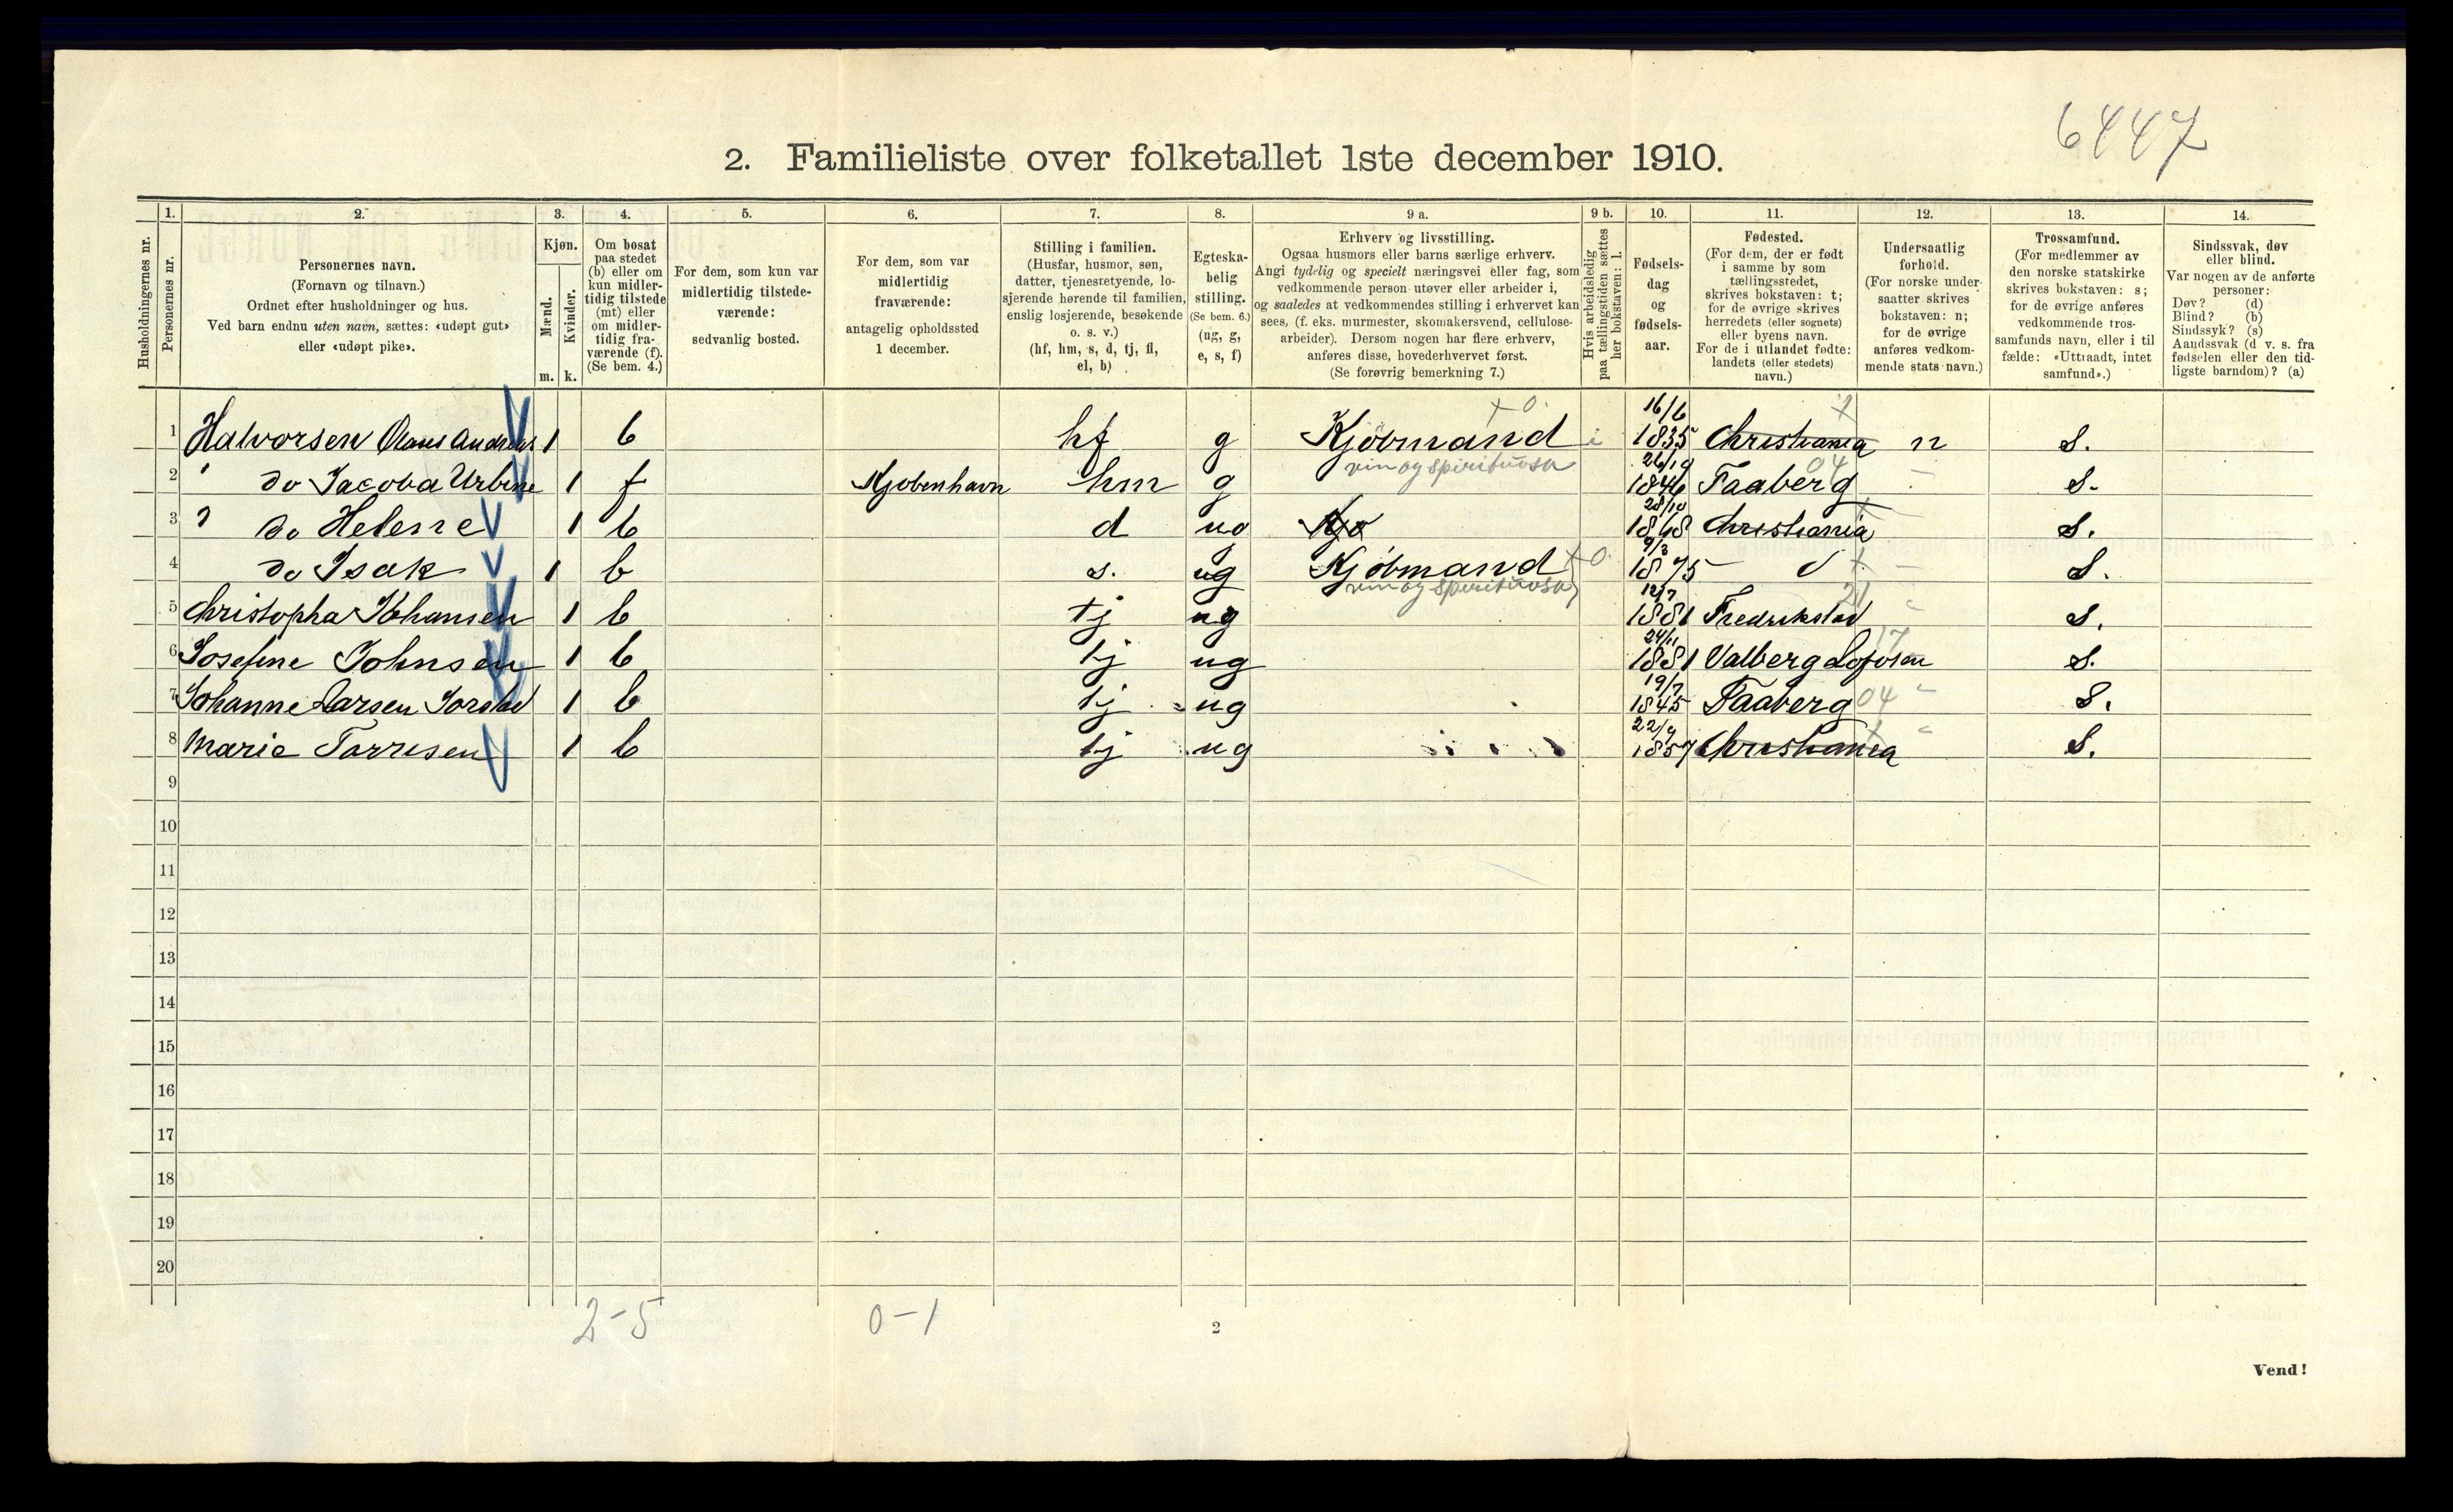 6447
2. Familieliste over folketallet 1ste december 1910.
1. 2. 3. 4. 5. 6. 7. 8. 9 a. 9 b. 10. 11. 12. 13. 14.
Husholdningernes nr.
Personernes nr.
Personernes navn.
(Fornavn og tilnavn.)
Ordnet efter husholdninger og hus.
Ved barn endnu uten navn, sættes: «udøpt gut»
eller «udøpt pike».
Kjøn.
Mænd.
Kvinder.
m. k.
Om bosat
paa stedet
(b) eller om
kun midler-
tidig tilstede
(mt) eller
om midler-
tidig fra-
værende (f).
(Se bem. 4.)
For dem, som kun var
midlertidig tilstede-
værende:
sedvanlig bosted.
For dem, som var
midlertidig
fraværende:
antagelig opholdssted
1 december.
Stilling i familien.
(Husfar, husmor, søn,
datter, tjenestetyende, lo-
sjerende hørende til familien,
enslig losjerende, besøkende
o. s. v.)
(hf, hm, s, d, tj, fl,
el, b)
Egteska-
belig
stilling.
(Se bem. 6.)
(ug, g,
e, s, f)
Erhverv og livsstilling.
Ogsaa husmors eller barns særlige erhverv.
Angi tydelig og specielt næringsvei eller fag, som
vedkommende person utøver eller arbeider i,
og saaledes at vedkommendes stilling i erhvervet kan
sees, (f. eks. murmester, skomakersvend, cellulose-
arbeider). Dersom nogen har flere erhverv,
anføres disse, hovederhvervet først.
(Se forøvrig bemerkning 7.)
Hvis arbeidsledig
paa tællingstiden sættes
her bokstaven: l.
Fødsels-
dag
og
fødsels-
aar.
Fødested.
(For dem, der er født
i samme by som
tællingsstedet,
skrives bokstaven: t;
for de øvrige skrives
herredets (eller sognets)
eller byens navn.
For de i utlandet fødte:
landets (eller stedets)
navn.)
Undersaatlig
forhold.
(For norske under-
saatter skrives
bokstaven: n;
for de øvrige
anføres vedkom-
mende stats navn.)
Trossamfund.
(For medlemmer av
den norske statskirke
skrives bokstaven: s;
for de øvrige anføres
vedkommende tros-
samfunds navn, eller i til-
fælde: «Uttraadt, intet
samfund».)
Sindssvak, døv
eller blind.
Var nogen av de anførte
personer:
Døv? (d)
Blind? (b)
Sindssyk? (s)
Aandssvak (d v. s. fra
fødselen eller den tid-
ligste barndom)? (a)
1 Halvorsen Olaus Andreas 1 b hf g Kjöbmand 16/6 1835 Christiania n S.
vin og spirituosa
2 do Jacoba Urbine 1 f Kjøbenhavn hm g 1846 Faaberg 04 S.
3 do Helene 1 b d ug 28/10 1868 Christiania S.
4 do Isak 1 b s. ug Kjøbmand 9/3 1875 S.
vin og spirituosa
5 Christopha Johansen 1 b tj ug 12/7 1881 Fredrikstad 21 S.
6 Josefine Johnsen 1 b tj ug 24/11 1881 Valberg Lofoten 17 S.
7 Johanne Larsen Jorstad 1 b tj ug 19/7 1845 Faaberg 04 S.
8 Marie Torrisen 1 b tj ug 22/9 1857 Christiania S.
9
10
11
12
13
14
15
16
17
18
19
20
2-5 0-1
2
Vend!